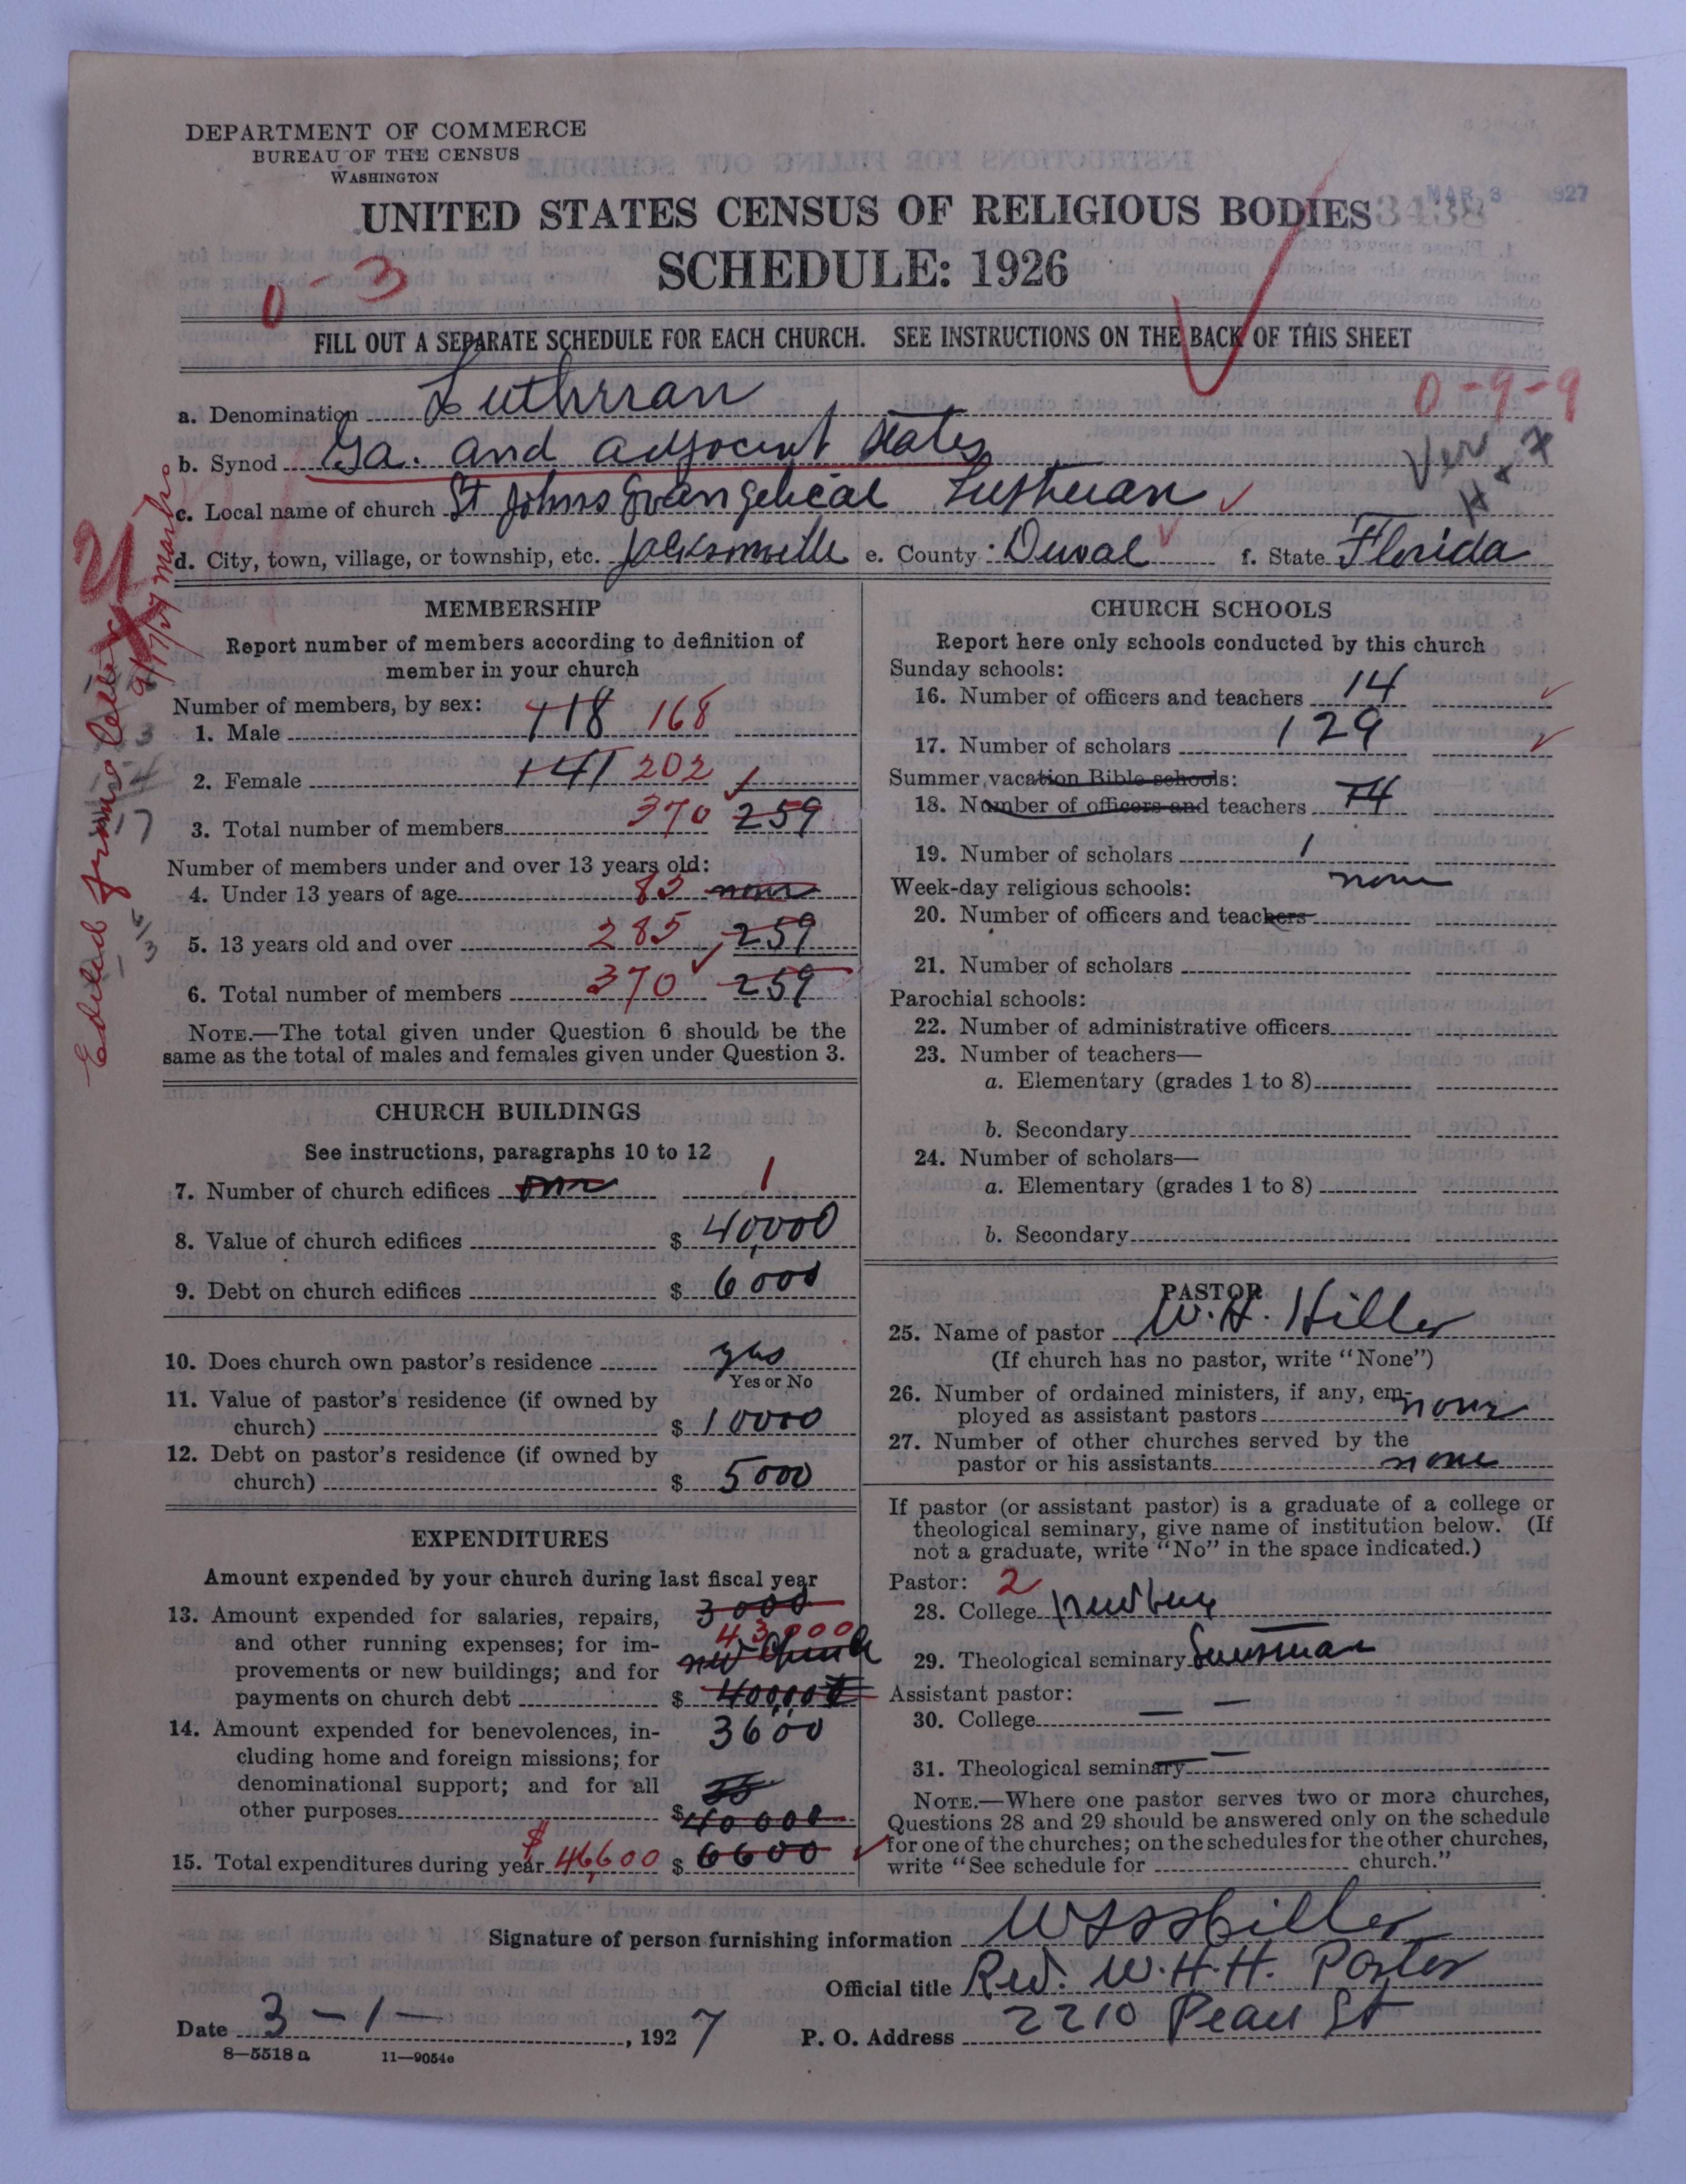 DEPARTMENT OF COMMERCE
BUREAU OF THE CENSUS
WASHINGTON
MAR 3 1927
UNITED STATES CENSUS OF RELIGIOUS BODIES 3438
SCHEDULE: 1926
0-3
FILL OUT A SEPARATE SCHEDULE FOR EACH CHURCH. SEE INSTRUCTIONS ON THE BACK OF THIS SHEET
0-9-9
a. Denomination Lutherran
b. Synod Ga. and adjacent States
Ver
c. Local name of church St Johns Evangelical Lutheran
d. City, town, village, or township, etc. Jacksonville e. County Duval f. State Florida
MEMBERSHIP
Report number of members according to definition of
member in your church
Number of members, by sex:
1. Male 118 168
2. Female 141 202
3. Total number of members 370 259
Number of members under and over 13 years old:
4. Under 13 years of age 85 none
5. 13 years old and over 285 259
6. Total number of members 370 259
NOTE.—The total given under Question 6 should be the
same as the total of males and females given under Question 3.
CHURCH BUILDINGS
See instructions, paragraphs 10 to 12
7. Number of church edifices one 1
8. Value of church edifices $ 40,000
9. Debt on church edifices $ 6000
10. Does church own pastor's residence yes
Yes or No
11. Value of pastor's residence (if owned by
church) $ 10000
12. Debt on pastor's residence (if owned by
church) $ 5000
EXPENDITURES
Amount expended by your church during last fiscal year
13. Amount expended for salaries, repairs, 3000
and other running expenses; for im- 43000
provements or new buildings; and for new Church
payments on church debt $ 40,000
14. Amount expended for benevolences, in- 3600
cluding home and foreign missions; for
denominational support; and for all
other purposes $ 40000
15. Total expenditures during year $ 46,600 $ 6600
CHURCH SCHOOLS
Report here only schools conducted by this church
Sunday schools:
16. Number of officers and teachers 14
17. Number of scholars 129
Summer vacation Bible schools:
18. Number of officers and teachers 14
19. Number of scholars 1
Week-day religious schools: none
20. Number of officers and teachers
21. Number of scholars
Parochial schools:
22. Number of administrative officers
23. Number of teachers—
a. Elementary (grades 1 to 8)
b. Secondary
24. Number of scholars—
a. Elementary (grades 1 to 8)
b. Secondary
PASTOR
25. Name of pastor W. H. Hiller
(If church has no pastor, write "None")
26. Number of ordained ministers, if any, em-
ployed as assistant pastors none
27. Number of other churches served by the
pastor or his assistants none
If pastor (or assistant pastor) is a graduate of a college or
theological seminary, give name of institution below. (If
not a graduate, write "No" in the space indicated.)
Pastor: 2
28. College
29. Theological seminary
Assistant pastor:
30. College —
31. Theological seminary —
NOTE.—Where one pastor serves two or more churches,
Questions 28 and 29 should be answered only on the schedule
for one of the churches; on the schedules for the other churches,
write "See schedule for church."
Signature of person furnishing information Hiller
Official title Rev. W. H. H. Paster
Date 3-1-, 1927 P. O. Address 2210 Pearl St
8-5518 a 11—9054e